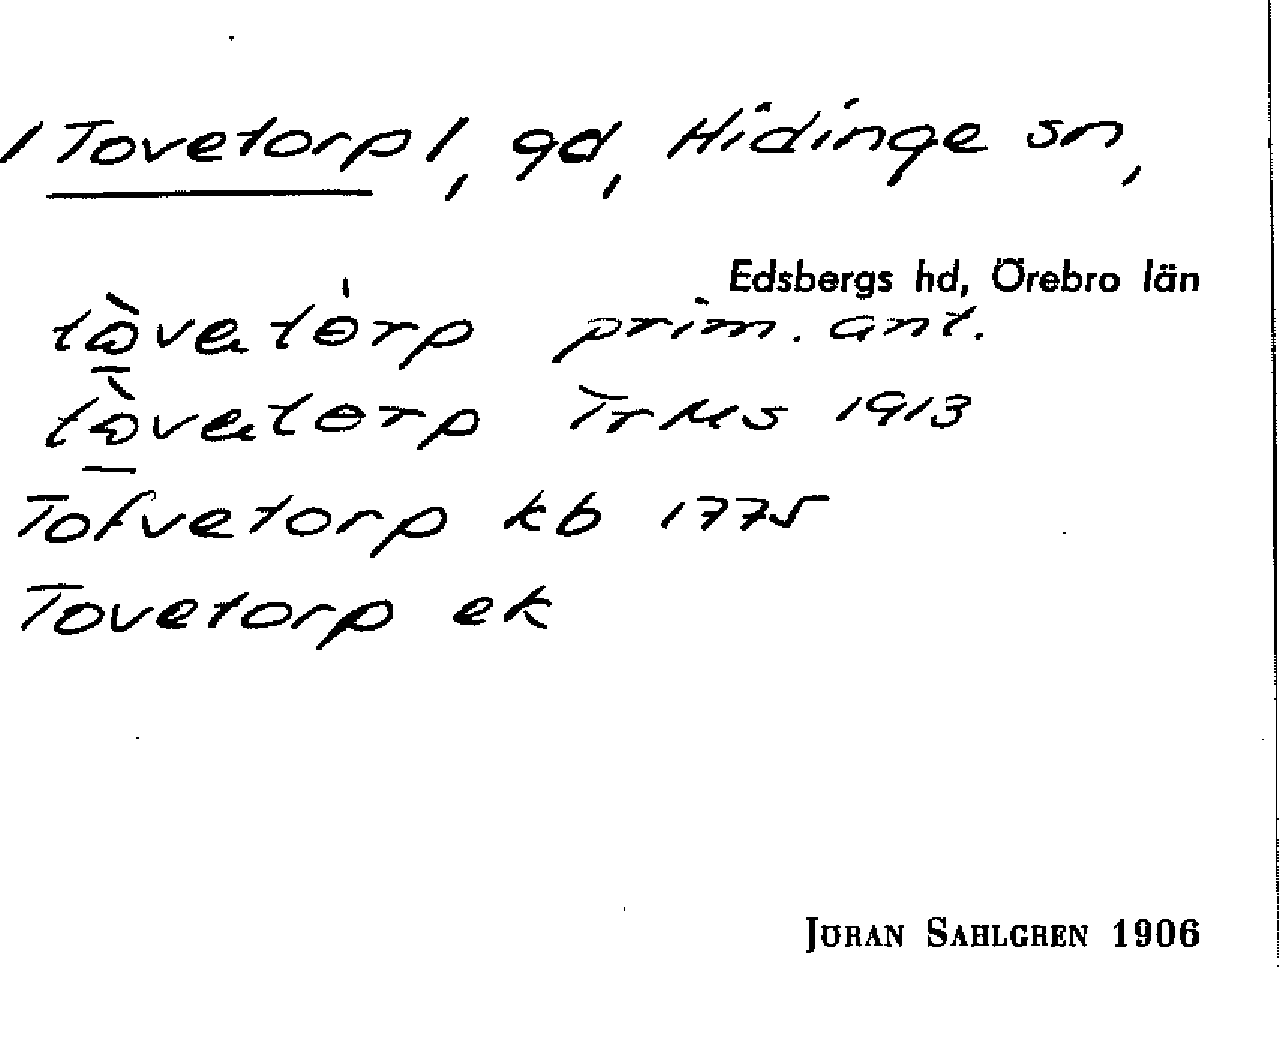 /Tovetorp/, gd, Hidinge sn,
Edsbergs hd, Örebro län
tὼ̲vatɵ̍rp prim. ant.
tὼ̲vatɵrp TrMs 1913
Tofvetorp kb 1775
Tovetorp ek
JÖRAN SAHLGREN 1906